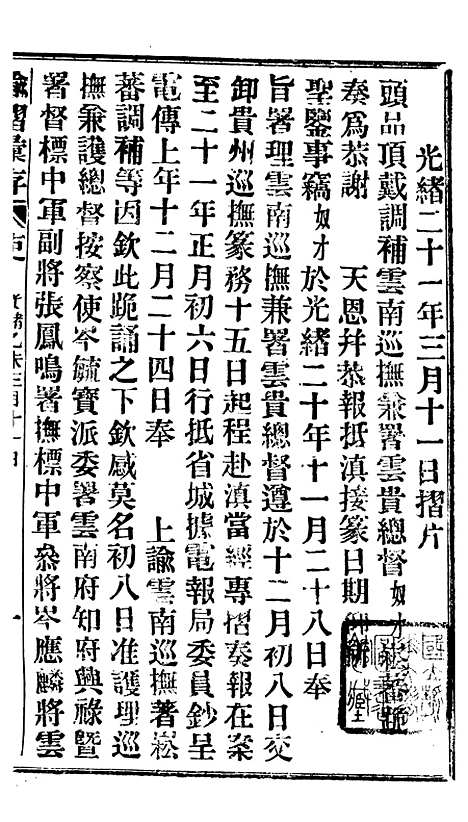 光緒二十一年三月十一日摺片
頭品頂戴調補雲南巡撫兼署雲貴總督奴才崧蕃跪
奏爲恭謝 天恩幷恭報抵滇接篆日期仰祈
聖鑒事竊奴才於光緒二十年十一月二十八日奉
旨署理雲南巡撫兼署雲貴總督遵於十二月初八日交
卸貴州巡撫篆務十五日起程赴滇當經專摺奏報在案
至二十一年正月初六日行抵省城據電報局委員鈔呈
電傳上年十二月二十四日奉 上諭雲南巡撫著崧
蕃調補等因欽此跪誦之下欽感莫名初八日准護理巡
撫兼護總督按察使岑毓寶派委署雲南府知府興祿暨
署督標中軍副將張鳳鳴署撫標中軍叅將岑應麟將雲
諭摺彙存 光緒乙未三月十一日 一